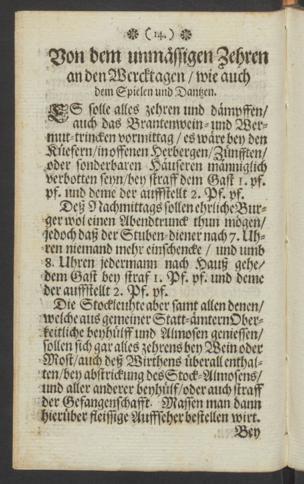 ❊ ( 14. ) ❊
Von dem unmässigen Zehren
an den Wercktagen / wie auch
dem Spielen und Dantzen.
ES solle alles zehren und dämpffen /
auch das Brantenwein- und Wer-
mut-trincken vormittag / es wäre bey den
Küefern / in offenen Herbergen / Zünfften /
oder sonderbaren Häuseren männiglich
verbotten seyn / bey straff dem Gast 1. pf.
pf. und deme der auffstellt 2. Pf. pf.
Deß Nachmittags sollen ehrliche Bur-
ger wol einen Abendtrunck thun mögen /
jedoch daß der Stuben-diener nach 7. Uh-
ren niemand mehr einschencke / und umb
8. Uhren jedermann nach Hauß gehe /
dem Gast bey straf 1. Pf. pf. und deme
der auffstellt 2. Pf. pf.
Die Stockleuthe aber samt allen denen /
welche aus gemeiner Statt-ämtern Ober-
keitliche beyhülff und Almosen geniessen /
sollen sich gar alles zehrens bey Wein oder
Most / auch deß Wirthens überall enthal-
ten / bey abstrickung des Stock-Almosens /
und aller anderer beyhülf / oder auch straff
der Gefangenschafft. Massen man dann
hierüber fleissige Auffseher bestellen wirt.
Bey